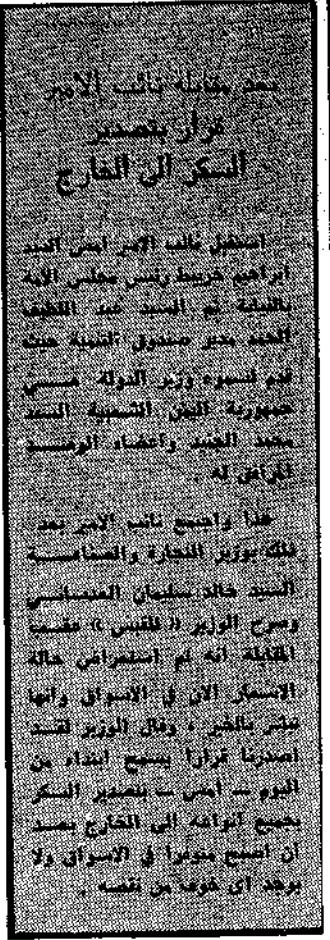 بعد مقابلة نائب الامير
قرار بتصدير
السكر الى الخارج
استقبل نائب الامير امس السيد
ابراهيم خريبط رئيس مجلس الامة
بالنيابة ثم السيد عبد اللطيف
الحمد مدير صندوق التنمية حيث
قدم لسموه وزير الدولة في
جمهورية اليمن الشعبية السيد
محمد واعضاء الوفد
المرافق له .
هذا واجتمع نائب الامير بعد
ذلك بوزير التجارة والصناعة
السيد خالد سليمان العدساني
وصرح الوزير « للقبس » عقب
المقابلة انه تم استعراض حالة
الاسعار الان في الاسواق وانها
تبشر بالخير ، وقال الوزير لقد
اصدرنا قرارا يسمح ابتداء من
اليوم — امس — بتصدير السكر
بجميع انواعه الى الخارج بعد
ان اصبح متوفرا في الاسواق ولا
يوجد اى خوف من نقصه .